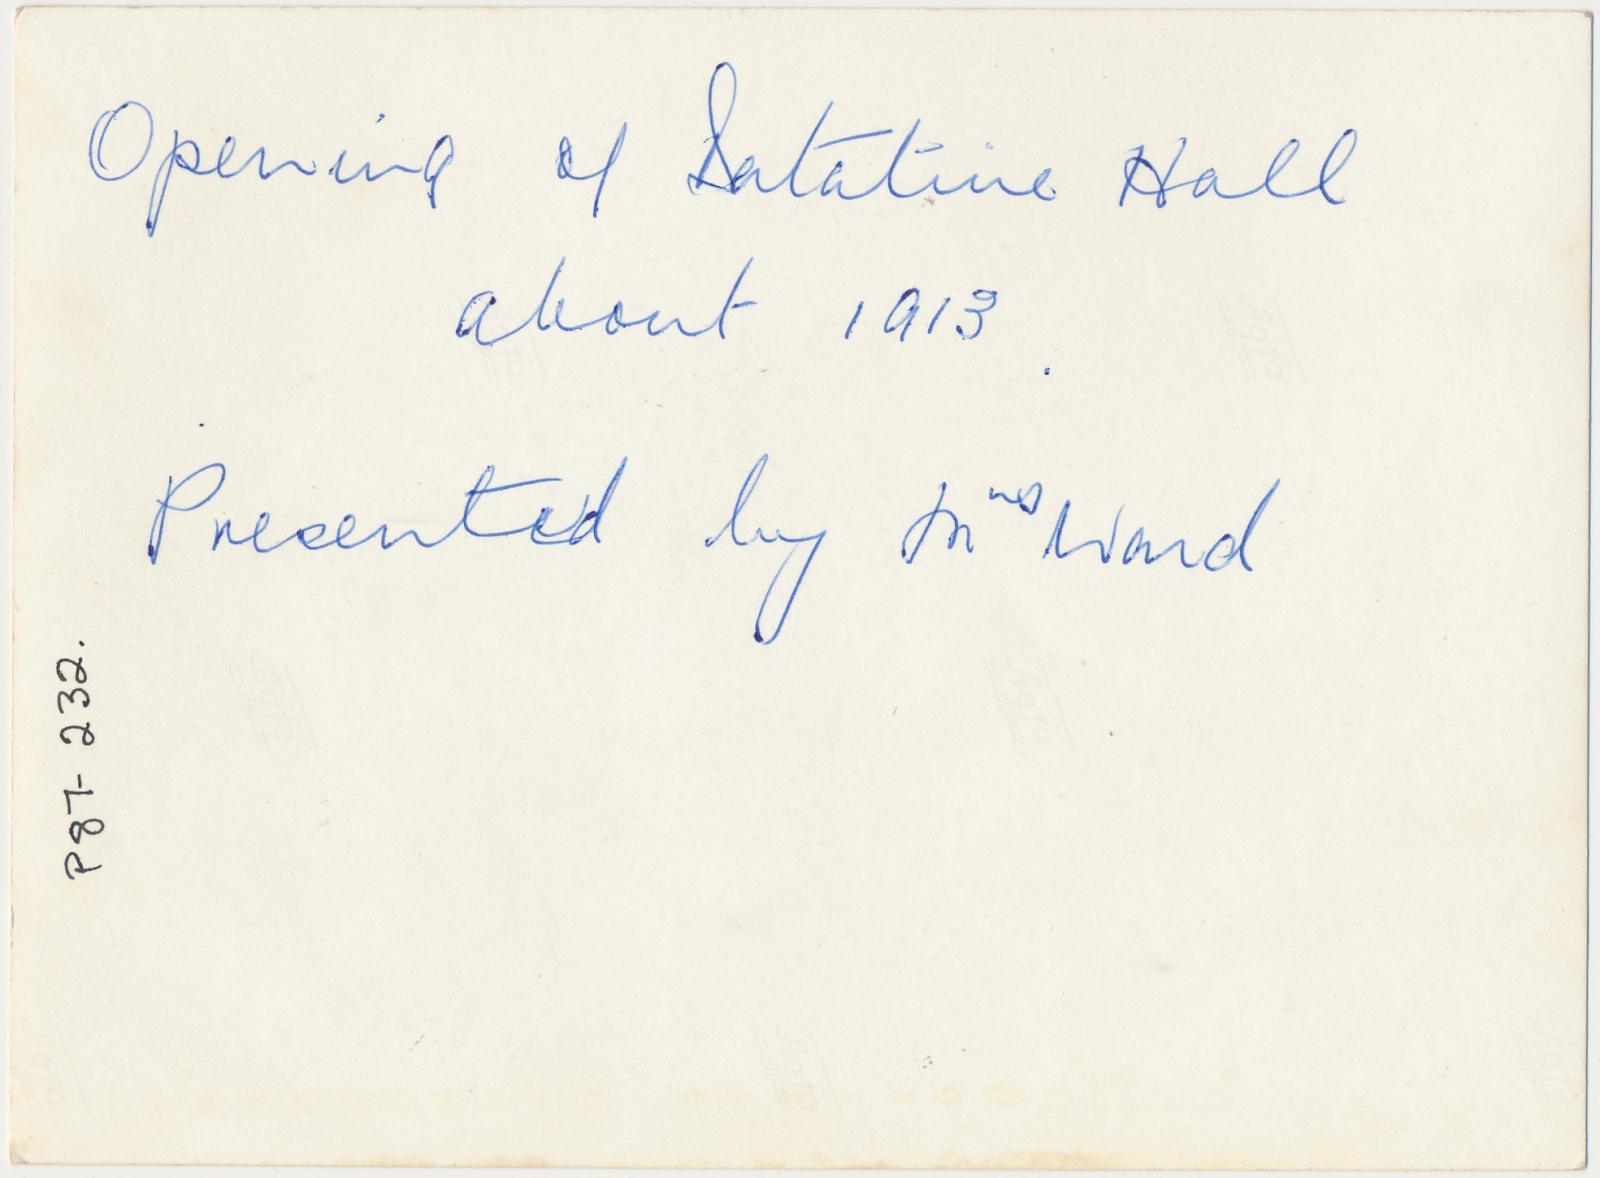 Opening of Datatine Hall
about 1913.
Presented by Mrs Ward
P87-232.